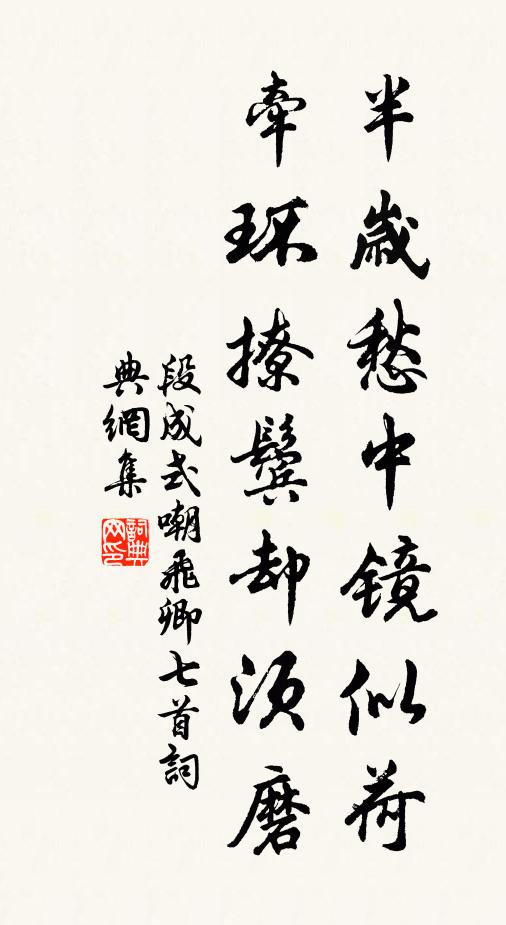 半歲愁中鏡似荷
牽环撩鬢却須磨
段成式嘲飛卿七首詞
典網集
詞典网印